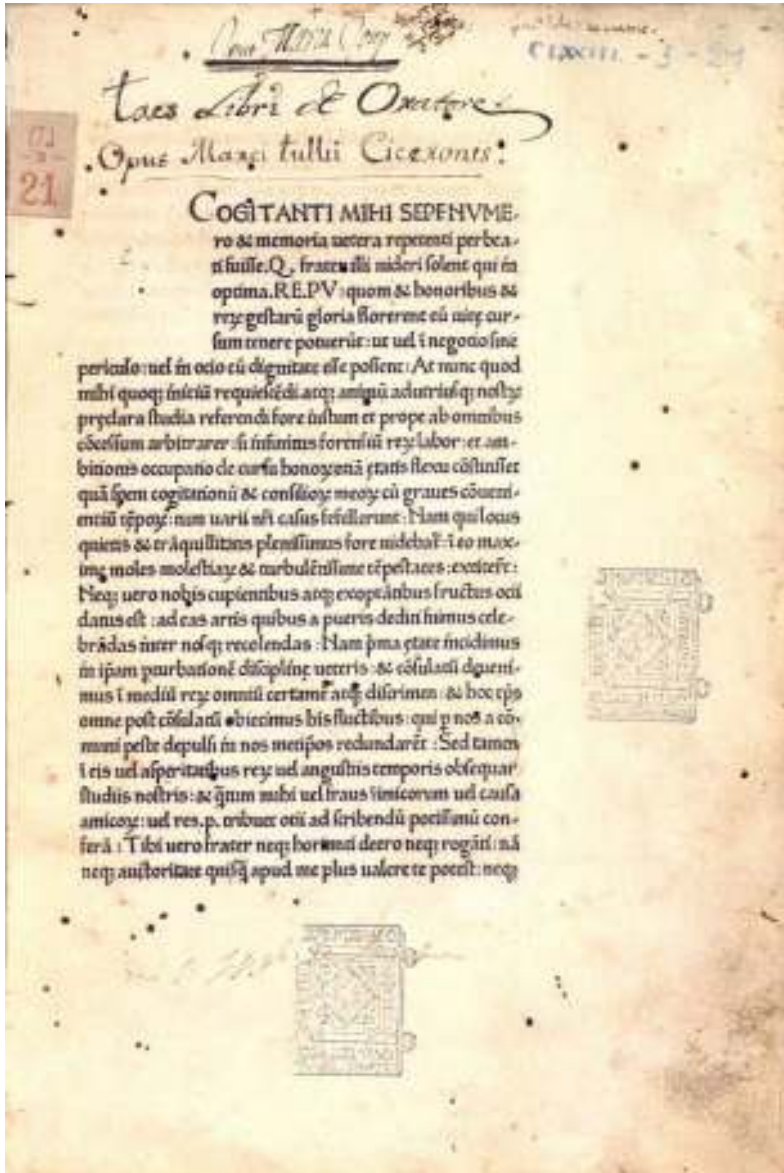 CLXXIII - 3 - 21
tres Libri de Oratore.
Opus Marci tullii Ciceronis:
21
COGITANTI MIHI SEPENVME-
ro & memoria uetera repetenti perbea-
ti fuisse .Q. frater illi uideri solent qui in
optima .RE.PV: quom & honoribus &
reꝝ gestarū gloria florerent eū uitę cur-
sum tenere potuerūt: ut uel ī negocio sine
periculo: uel in ocio cū dignitate esse possent: At nunc quod
mihi quoqꝫ iniciū requiescēdi atqꝫ animū ad utriusqꝫ nostꝝ
pręclara studia referendi fore iustum et prope ab omnibus
cōcessum arbitrarer: si infinitus forensiū reꝝ labor: et am-
bitionis occupatio de cursu honoꝝ etiā ętatis flexu cōstitisset
quā spem cogitationū & consilioꝝ meoꝝ cū graues cōueni-
entiū tēpoꝝ: tum uarii nr̄i casus fefellerunt: Nam qui locus
quietis & trāquillitatis plenissimus fore uidebat: ī eo max-
imę moles molestiaꝝ & turbulētissime tēpestates: extiter̄t:
Neqꝫ uero nobis cupientibus atqꝫ exoptātibus fructus ocii
datus est: ad eas artis quibus a pueris dediti fuimus cele-
brādas inter nosqꝫ recolendas: Nam p̄ma ętate incidimus
in ip̄am ꝑturbationē disciplinę ueteris: & cōsulatū deueni-
mus ī mediū reꝝ omniū certamē atqꝫ discrimen: & hoc tp̄s
omne post cōsulatū obiecimus his fluctibus: qui ꝑ nos a cō-
muni peste depulsi in nos metip̄os redundarēt: Sed tamen
ī eis uel asperitatibus reꝝ uel angustiis temporis obsequar
studiis nostris: & q̄tum mihi uel fraus īimicorum uel causa
amicoꝝ: uel res.p. tribuet otii ad scribendū potissimū con-
ferā: Tibi uero frater neqꝫ hortanti deero neqꝫ rogāti: nā
neqꝫ auctoritate quisq̄ apud me plus ualere te potest: neqꝫ